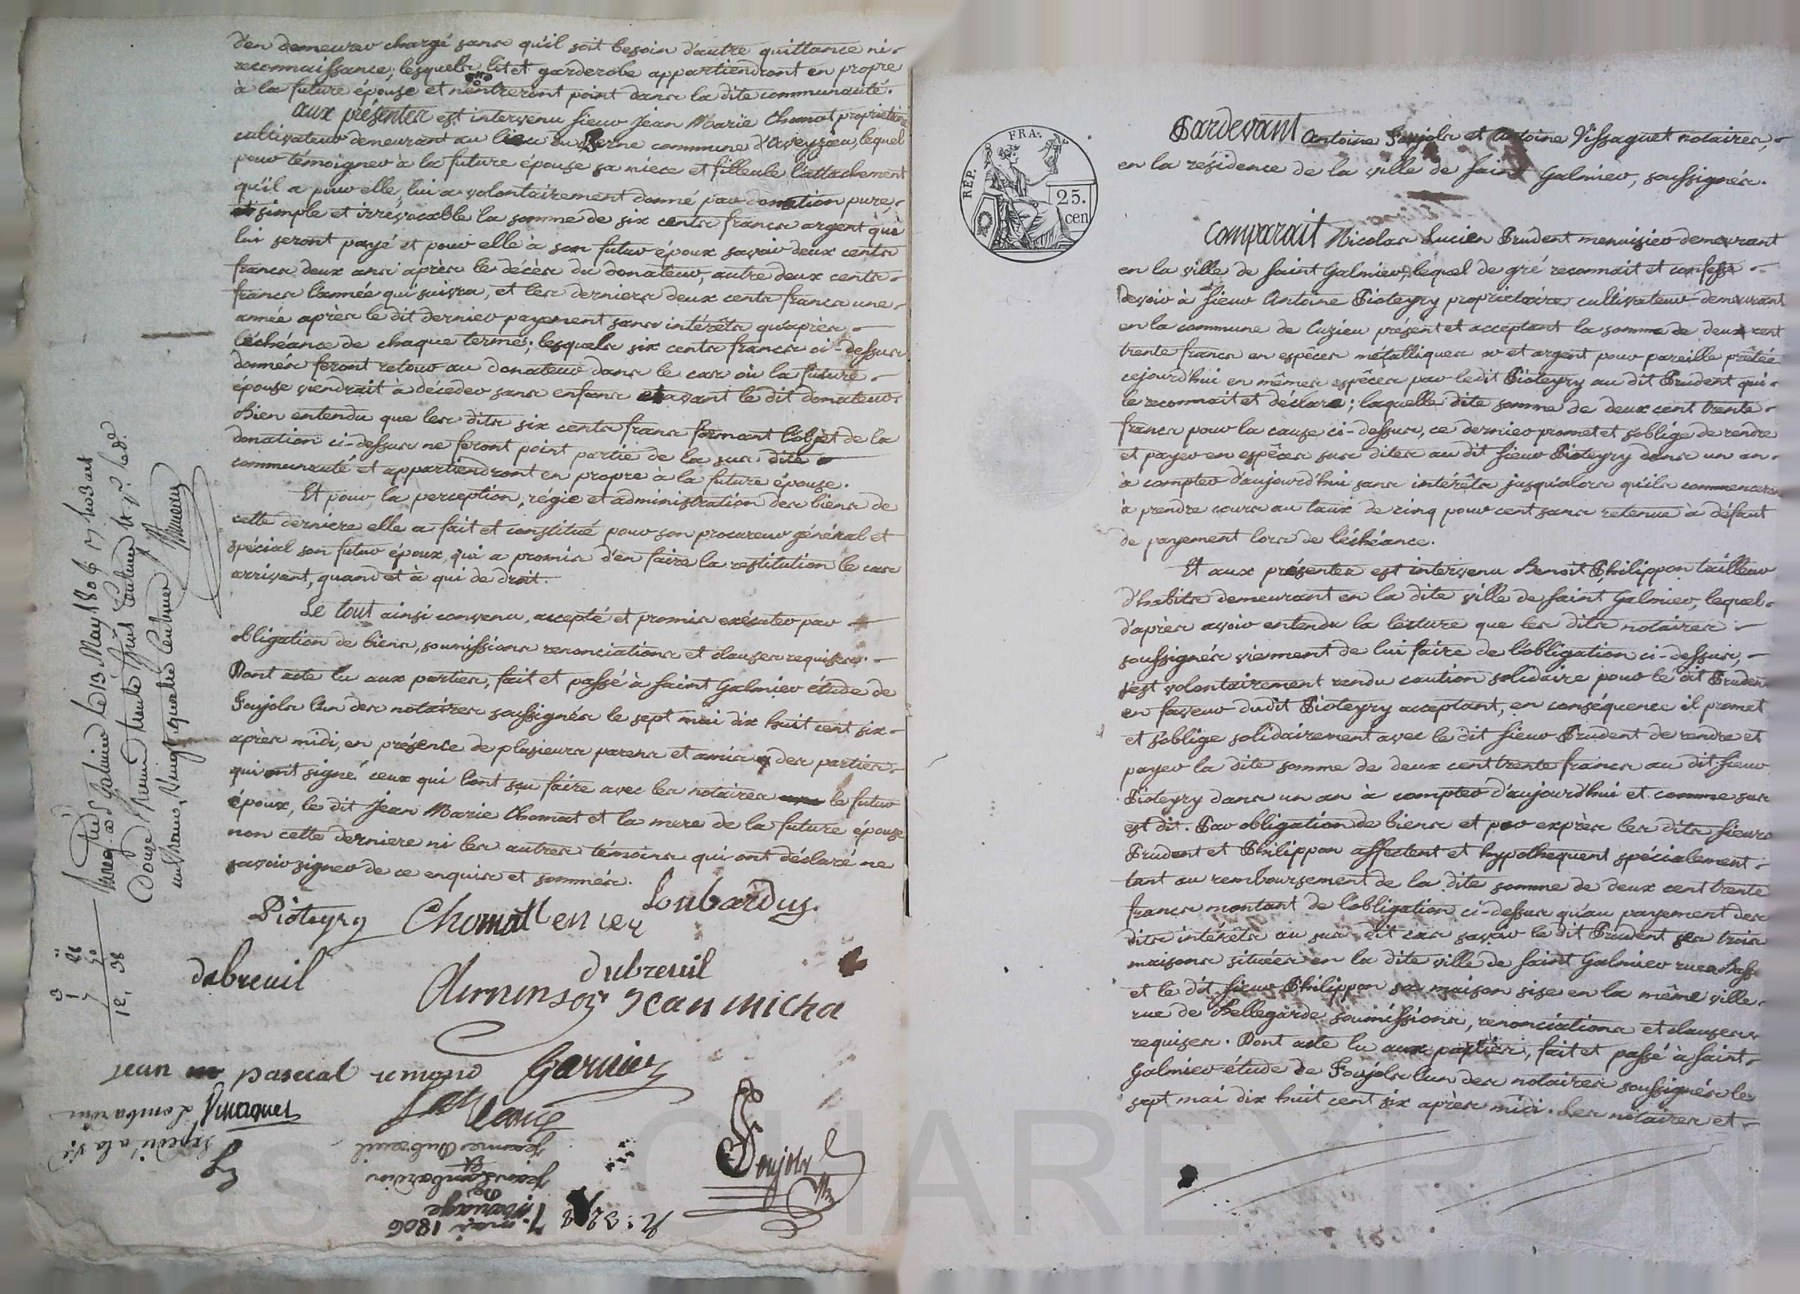 d'en demeurer chargé sans qu'il soit besoin d'autre quittance ni
reconnaissance; lesquels lit et garderobe appartiendront en propre
à la future épouse et n'entreront point dans la dite communauté.
aux présentes est intervenu sieur Jean Marie Chomat propriétaire
cultivateur demeurant au lieu du Verne commune d'Aveyzieu, lequel
pour témoigner à la future épouse sa niece et filleule l'attachement
qu'il a pour elle, lui a volontairement donné par donation pure,
et simple et irrévocable la somme de six cents francs argent qui
lui seront payé et pour elle à son futur époux savoir deux cents
francs deux ans après le décès du donateur, autre deux cents
francs l'année qui suivra, et les derniers deux cents francs une
année après le dit dernier payement sans intérêts qu'après
l'échéance de chaque terme; lesquels six cents francs ci-dessus
donnés feront retour au donateur dans le cas où la future
épouse viendrait à décéder sans enfans et avant le dit donateur
bien entendu que les dits six cents francs formant l'objet de la
donation ci-dessus ne feront point partie de la sus dite
communauté et appartiendront en propre à la future épouse.
Et pour la perception, régie et administration des biens de
cette dernière elle a fait et constitué pour son procureur général et
spécial son futur époux, qui a promis d'en faire la restitution le cas
arrivant, quand et à qui de droit.
Le tout ainsi convenu, accepté et promis exécuter par
obligation de biens, soumissions renonciations et clauses requises.
Dont acte lu aux parties, fait et passé à Saint Galmier étude de
Foujols l'un des notaires soussignés le sept mai dix huit cent six
après midi, en présence de plusieurs parens et amis des parties
qui ont signé ceux qui l'ont sçu faire avec les notaires le futur
époux, le dit Jean Marie Chomat et la mere de la future épouse
non cette derniere ni les autres témoins qui ont déclaré ne
savoir signer de ce enquis et sommés.
Pioteyry Chomat Lombardin
dubreuil dubreuil
Jean micha
Jean pascal remond Garnier
Foujols
Enreg. à St Galmier le 13 May 1806
7. mai 1806
Mariage
De
Jean Lombardin
Et
Jeanne Dubreuil
Expédié à la dit
Lombardin
Pardevant Antoine Foujols et Antoine Vissaguet notaires,
en la résidence de la ville de Saint Galmier, soussignés.
REP. FRA.
25.
cen
Comparait Nicolas Lucien Prudent menuisier demeurant
en la ville de Saint Galmier, lequel de gré reconnait et confesse
devoir à sieur Antoine Pioteyry propriétaire cultivateur demeurant
en la commune de Cuzieu présent et acceptant la somme de deux cent
trente francs en espêces métalliques or et argent pour pareille prêtée
cejourd'hui en mêmes espêces par ledit Pioteyry au dit Prudent qui
le reconnait et déclare; laquelle dite somme de deux cent trente
francs pour la cause ci-dessus, ce dernier promet et s'oblige de rendre
et payer en espêces sus dites au dit sieur Pioteyry dans un an
à compter d'aujourd'hui sans intérêts jusqu'alors qu'ils commenceront
à prendre cours au taux de cinq pour cent sans retenue à défaut
de payement lors de l'échéance.
Et aux présentes est intervenu Benoit Philippon tailleur
d'habits demeurant en la dite ville de Saint Galmier, lequel
d'après avoir entendu la lecture que les dits notaires
soussignés viennent de lui faire de l'obligation ci-dessus,
s'est volontairement rendu caution solidaire pour le dit Prudent
en faveur dudit Pioteyry acceptant, en conséquence il promet
et s'oblige solidairement avec le dit sieur Prudent de rendre et
payer la dite somme de deux cent trente francs au dit sieur
Pioteyry dans un an à compter d'aujourd'hui et comme sus
est dit. Par obligation de biens et par exprès les dits sieurs
Prudent et Philippon affectent et hypothequent spécialement
tant au remboursement de la dite somme de deux cent trente
francs montant de l'obligation ci-dessus qu'au payement des
dits intérêts au sus dit cas savoir le dit Prudent ses trois
maisons situées en la dite ville de Saint Galmier rue Basse
et le dit sieur Philippon sa maison sise en la même ville
rue de Bellegarde soumissions, renonciations et clauses
requises. Dont acte lu aux parties, fait et passé à Saint
Galmier étude de Foujols l'un des notaires soussignés le
sept mai dix huit cent six après midi. Les notaires et
CHAREYRON